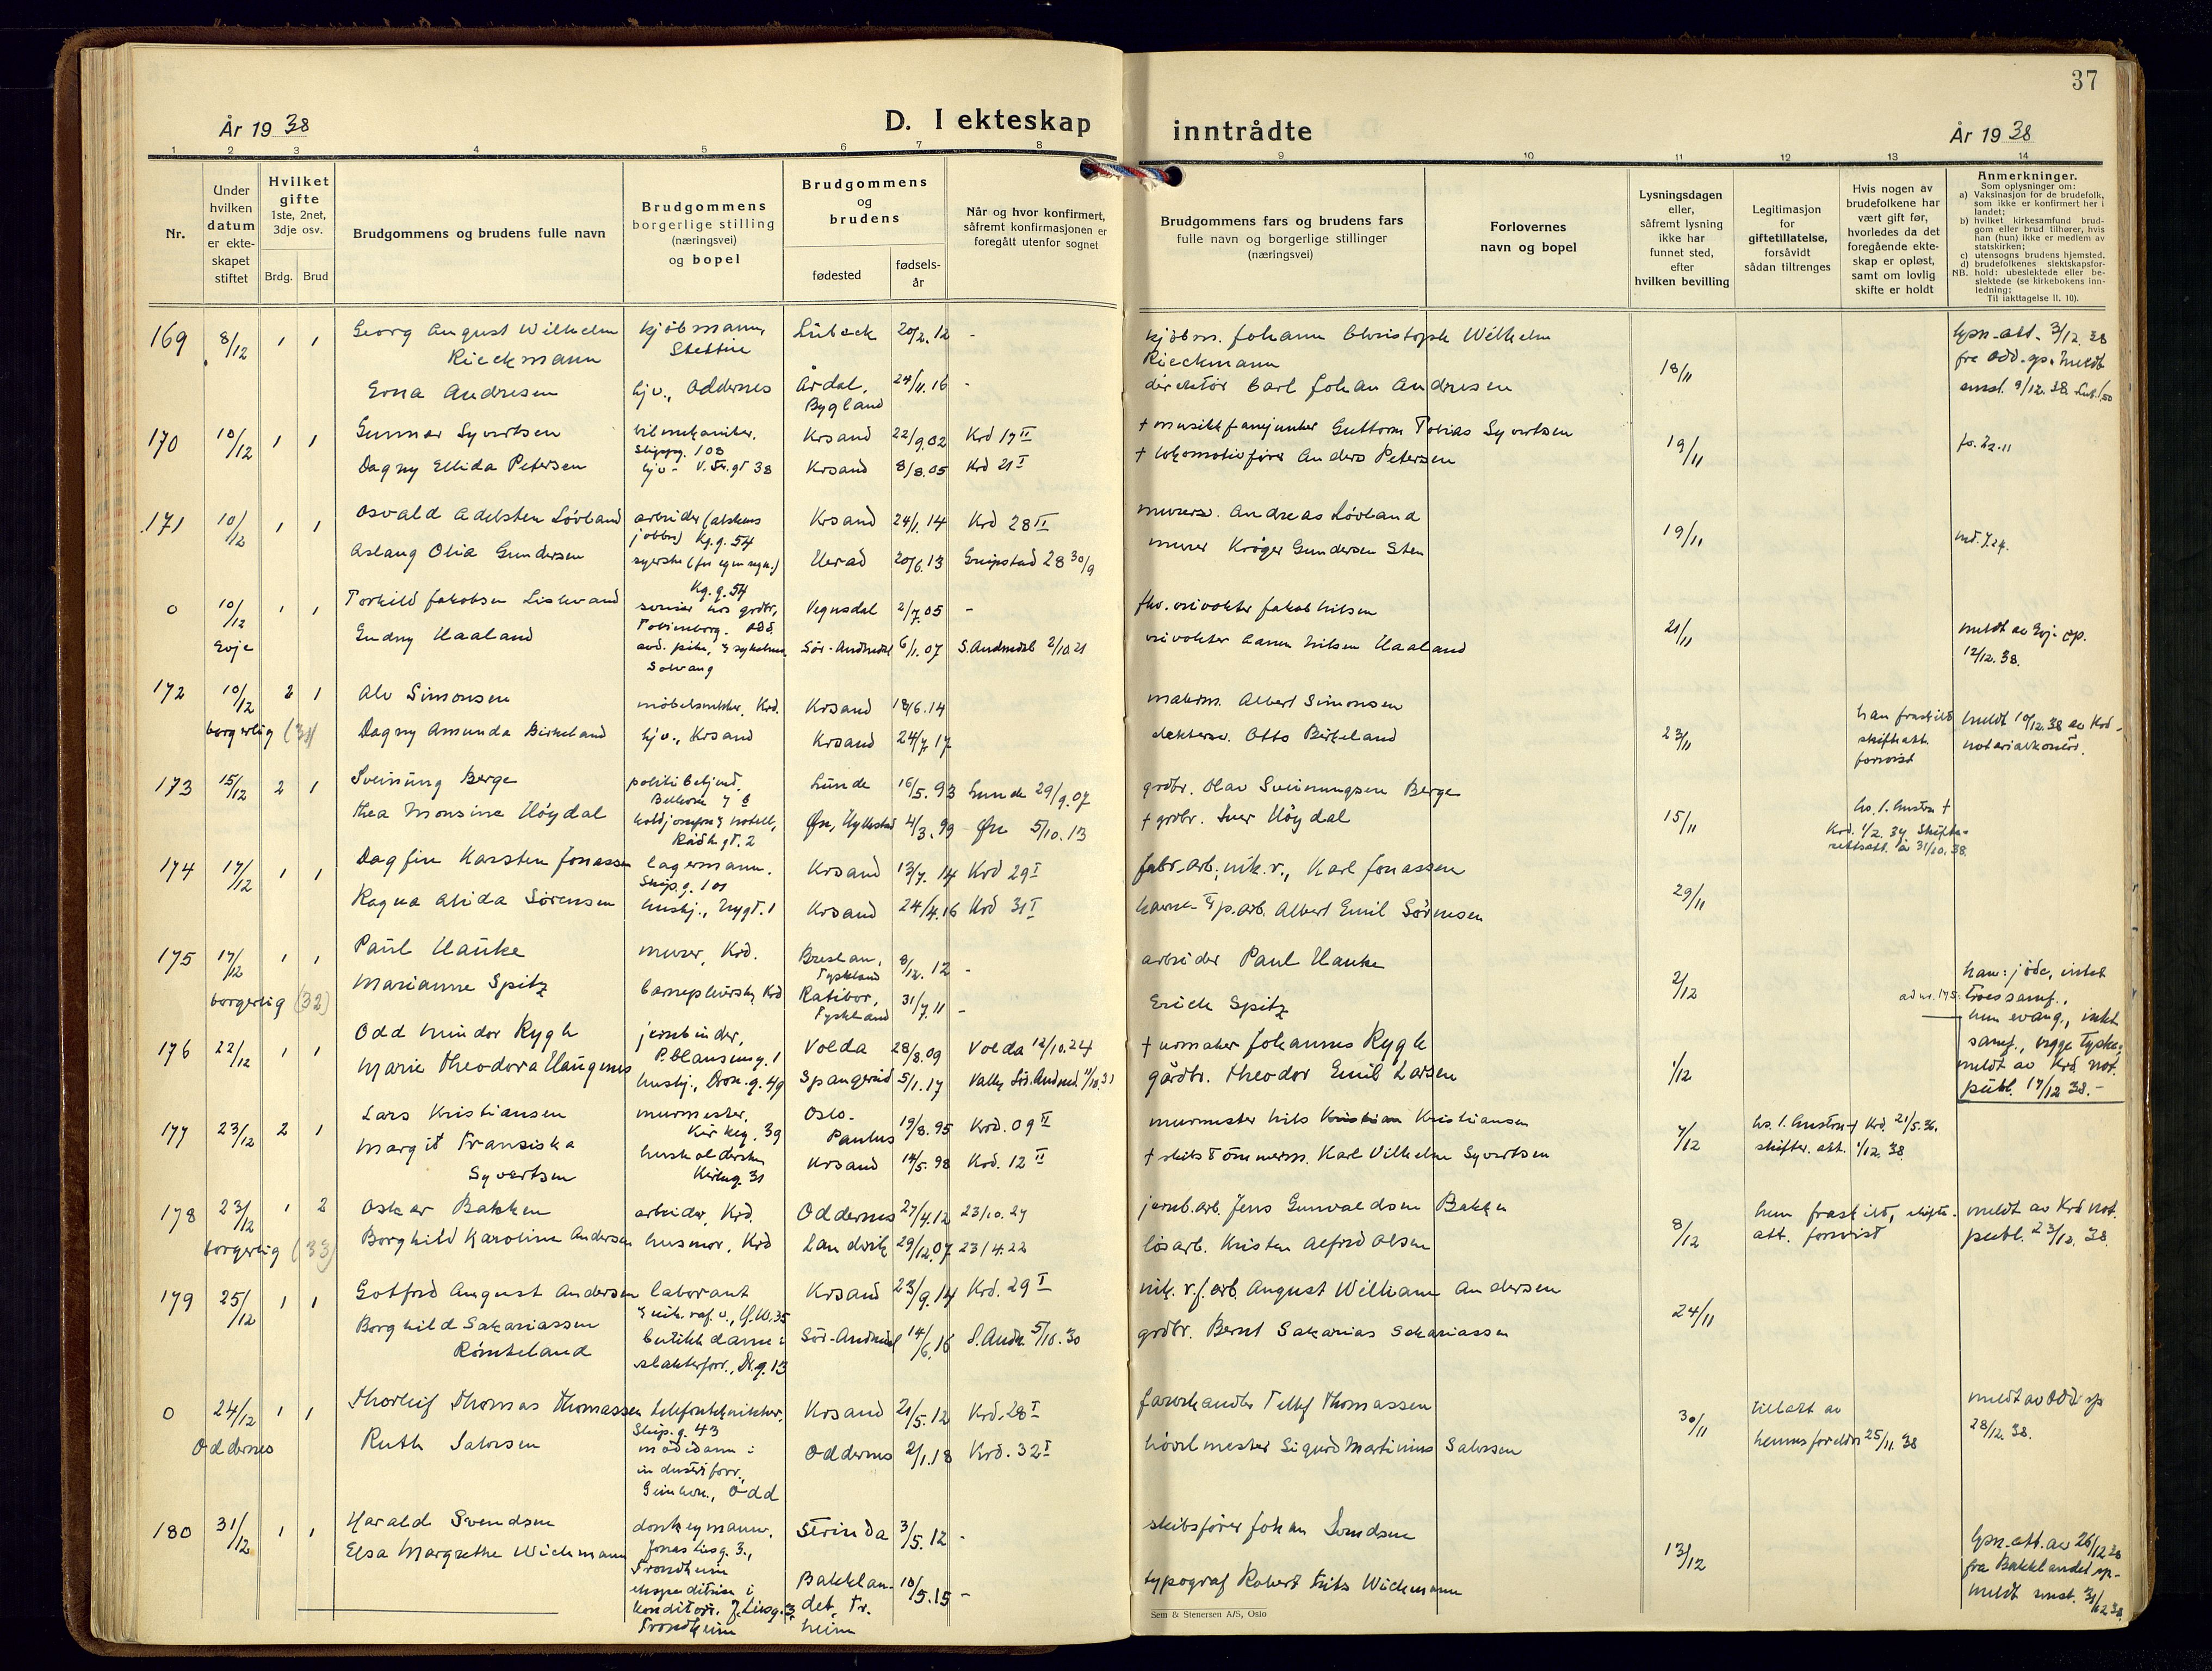 37
År 1938
D. I ekteskap inntrådte
År 1938
1 2 3 4 5 6 7 8 9 10 11 12 13 14
Nr.
Under hvilken datum er ekte-skapet stiftet
Hvilket gifte 1ste, 2net, 3dje osv.
Brdg. Brud
Brudgommens og brudens fulle navn
Brudgommens borgerlige stilling (næringsvei) og bopel
Brudgommens og brudens
fødested
fødsels-år
Når og hvor konfirmert, såfremt konfirmasjonen er foregått utenfor sognet
Brudgommens fars og brudens fars fulle navn og borgerlige stillinger (næringsvei)
Forlovernes navn og bopel
Lysningsdagen eller, såfremt lysning ikke har funnet sted, efter hvilken bevilling
Legitimasjon for giftetillatelse, forsåvidt sådan tiltrenges
Hvis nogen av brudefolkene har vært gift før, hvorledes da det foregående ekte-skap er opløst, samt om lovlig skifte er holdt
Anmerkninger.
Som oplysninger om:
a) Vaksinasjon for de brudefolk, som ikke er konfirmert her i landet;
b) hvilket kirkesamfund brud-gom eller brud tilhører, hvis han (hun) ikke er medlem av statskirken;
c) utensogns brudens hjemsted.
d) brudefolkenes slektskapsfor-
NB. hold: ubeslektede eller be-slektede (se kirkebokens inn-ledning;
Til iakttagelse II. 10).
169 8/12 1 1 Georg August Wilhelm Rieckmann kjöbmann, Stettin Lübeck 20/2.12 - kjöbm. Johann Christoph Wilhelm Rieckmann 18/11
Erna Andresen hjv., Oddernes Årdal, Bygland 24/11.16 - direktör Carl Johan Andresen
170 10/12 1 1 Gunnar Syvertsen bilmekaniker, Krsand 22/9.02 Krd 17 II + musikkfanejunker Guttorm Tobias Syvertsen 19/11 fo. 22.11
Dagny Ellida Petersen hjv. V. Str. gt 38 Krsand 8/8.05 Krd 21 I + lokomotivförer Anders Petersen
171 10/12 1 1 Osvald Adelsten Lövland arbeider Kg.g. 54 Krsand 24/1.14 Krd 28 II murerv. Andreas Lövland 19/11
Aslaug Olia Gundersen syerske Kg.g. 54 Herad 20/6.13 Greipstad 28 30/9 murer Kröger Gundersen Sten
0 10/12 1 1 Torkild Jakobsen Lislevand Vegusdal 2/7.05 - fhv. veivokter Jakob Nilsen 21/11 meldt av Evje sp. 12/12.38.
Evje Gudny Haaland Solvang Sör-Audnedal 6/1.07 S. Audnedl 2/10 21 veivokter Aanen Nilsen Haaland
172 10/12 2 1 Alv Simonsen möbelsnekker, Krd. Krsand 18/6.14 malerm. Albert Simonsen 23/11 han fraskilt skifteatt. forevist meldt 10/12.38 av Krd notarialkontor.
borgerlig (31) Dagny Amunda Birkeland hjv., Krsand Krsand 24/7.17 slakterv. Otto Birkeland
173 15/12 2 1 Sveinung Berge politibetjent, Lunde 16/5.93 Lunde 29/9.07 grdbr. Olav Sveinungsen Berge 15/11 hs. 1. hustru + Krd. 1/2.34. Skifte-rettsatt. av 31/10.38.
Thea Monsine Höydal koldjomfru hotell, Rådh.gt. 2 Öre, Hyllestad 4/3.99 - Öre 5/10.13 + grdbr. Iver Höydal
174 17/12 1 1 Dagfin Karsten Jonassen lagermann. Skip.g. 101 Krsand 13/7.14 Krd 29 I fabr.arb., nik.r., Karl Jonassen 29/11
Ragna Alida Sörensen hushj., Nygt. 1 Krsand 24/4.16 Krd 31 I Albert Emil Sörensen
175 17/12 1 1 Paul Hauke murer, Krd. Breslau, Tyskland 8/12.12 - arbeider Paul Hauke 2/12 ad nr. 175. han: jöde, intet trossamf., hun evang., intet samf., begge tyske; meldt av Krd. not. publ. 17/12 38.-
borgerlig (32) Marianne Spitz barnepleierske, Krd Ratibor, Tyskland 31/7.11 - Erich Spitz
176 22/12 1 1 Odd Mindor Rygh jernbinder, P. Clausensg. 1 Volda 28/8.09 Volda 12/10.24 + urmaker Johannes Rygh 1/12
Marie Theodora Haugenes hushj., Dron.g. 49 Spangereid 5/1.17 Valle, Sör.Audned. 11/10.31 gårdbr. Theodor Emil Larsen
177 23/12 2 1 Lars Kristiansen murmester, Kirkeg. 39 Oslo-Paulus 19/8.95 Krd. 09 II murmester Nils Kristian Kristiansen 7/12 hs. 1. hustru + Krd. 21/5.36. skifter. att. 1/12.38.
Margit Fransiska Syvertsen husholderske Kirkeg. 31 Krsand 14/5.98 Krd. 12 II + skibstömmerm. Karl Vilhelm Syvertsen
178 23/12 1 2 Oskar Bakken arbeider, Krd. Oddernes 27/4.12 23/10.27 jernb.arb. Jens Gunvaldsen Bakken 8/12 hun fraskilt, skifte-att. forevist meldt av Krd not. publ. 23/12.38.
borgerlig (33) Borghild Karoline Andersen husmor, Krd Landvik 29/12.07 23/4.22 lösarb. Kristen Alfred Olsen
179 25/12 1 1 Gotfred August Andersen laborant Krsand 23/9.14 Krd. 29 I nik.r.f.arb. August William Andersen 24/11
Borghild Sakariassen Römteland butikkdame i slakterforr., Dr.g. 13 Sör-Audnedal 14/6.16 S. Audn. 5/10.30 grdbr. Bernt Sakarias Sakariassen
0 24/12 1 1 Thorleif Thomas Thomassen telefontekniker, Skip.g. 43 Krsand 21/5.12 Krd. 28 I farvehandler Tellef Thomassen 30/11 tillatt av hennes foreldre 25/11.38 meldt av Odd sp 28/12.38.
Oddernes Ruth Salvesen modedame i industriforr., Odd Oddernes 2/1.18 Krd. 32 I hövelmester Sigurd Martinius Salvesen
180 31/12 1 1 Harald Svendsen donkeymann, Jonas Liesg. 3., Trondheim Strinda 3/5.12 - skibsförer Johan Svendsen 13/12
Elsa Margrethe Wichmann ekspeditrise i konditori. J. Liesg. 3, Trondheim Bakklandet, Tr.heim 10/5.15 - typograf Robert Frits Wichmann
Sem & Stenersen A/S, Oslo